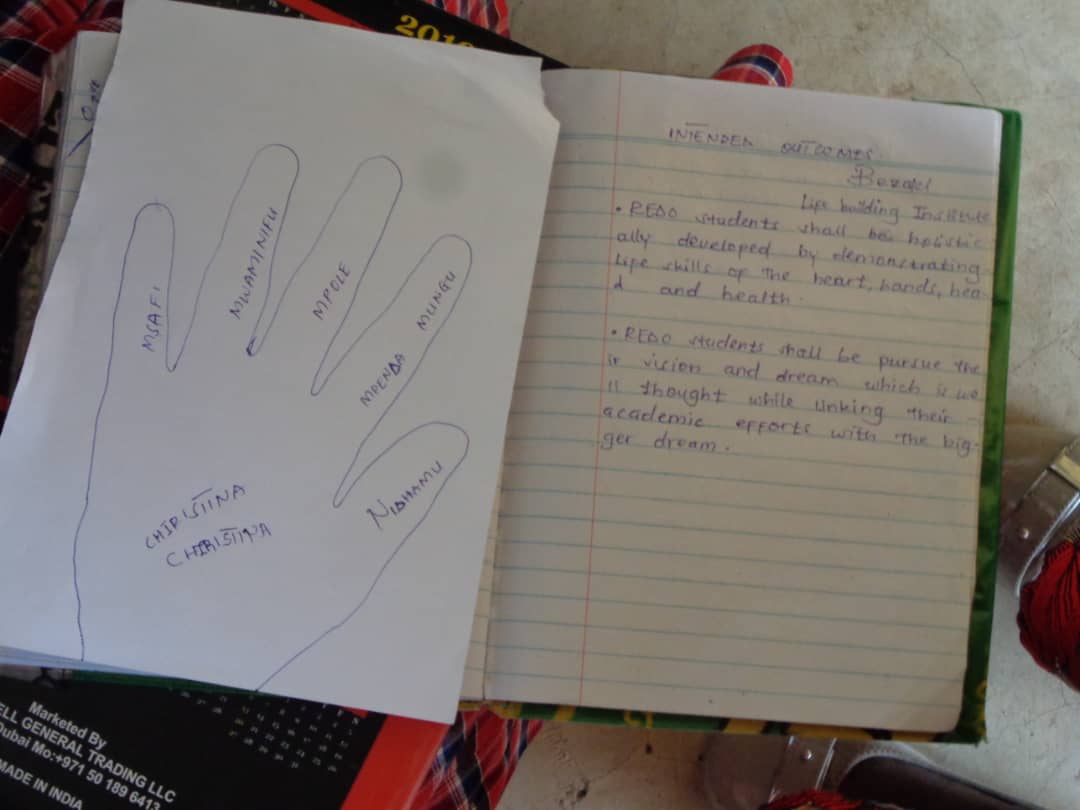 2010
MSAFI
MWAMINIFU
MPOLE
MPENDA MUNGU
NIDHAMU
CHIRISTINA
CHIRISTINA
INTENDED OUTCOMES
Life building Institute
• REDO students shall be holistic
ally developed by demonstrating
Life skills of The heart, hands, hea-
d and health.
• REDO students shall be pursue the
ir vision and dream which is we
ll thought while linking their
academic efforts with the big-
ger dream.
Marketed By
ELL GENERAL TRADING LLC
Dubai Mo:+971 50 189 6413
MADE IN INDIA